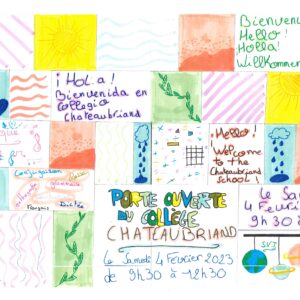 Bienvenu
Hello!
Holla!
Willkommen
¡Hola!
Bienvenida en
Collegio
Chateaubriand
¡Hello!
Welcome
to the
Chateaubriand
school!
Conjugaison
grammaire
Français
Dictée
PORTE OUVERTE
DU COLLÈGE
CHATEAUBRIAND
Le Samedi 4 Février 2023
de 9h30 à 12h30
Le Same
4 Février
9h30
SVT